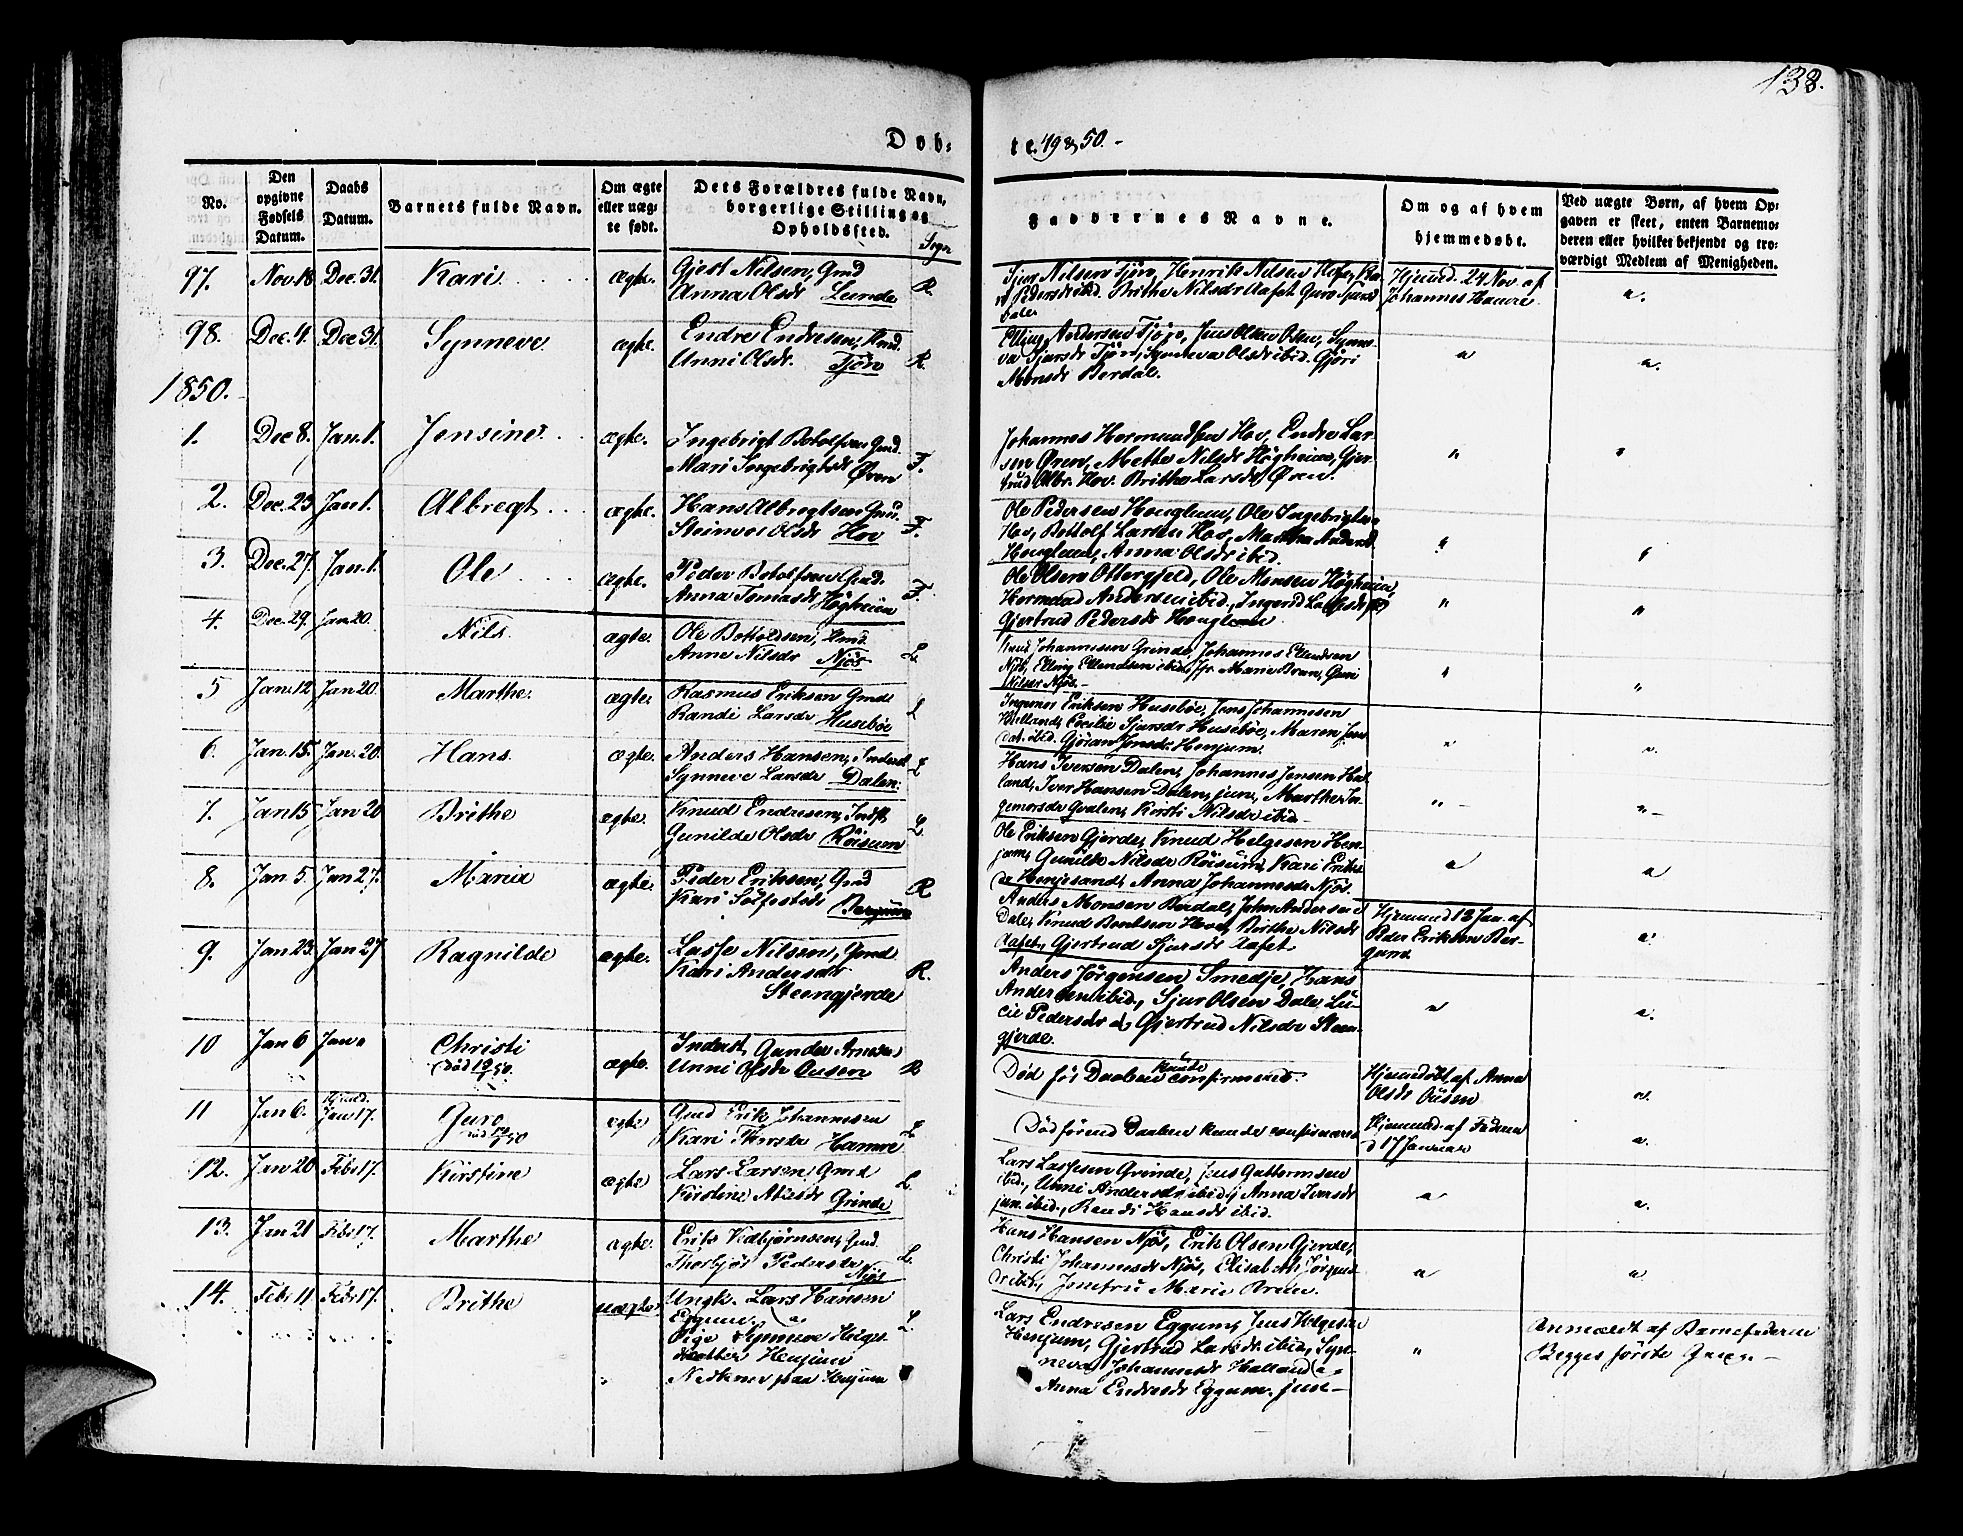 138.
Døb-
te. 49 & 50.
No.
Den opgivne Fødsels Datum.
Daabs Datum.
Barnets fulde Navn.
Om ægte eller uægte født.
Dets Forældres fulde Navn, borgerlige Stilling og Opholdsted.
Sogn
Faddernes Navne.
Om og af hvem hjemmedøbt.
Ved uægte Børn, af hvem Opgaven er skeet, enten Barnemoderen eller hvilket bekjendt og troværdigt Medlem af Menigheden.
97. Nov. 18. Dec. 31. Kari ægte. Gjest Nilsen, Gmd R.
Anna Olsdr Lunde
Sjur Nilsen Tjøn, Henrik Nilsen
Pedersdr ibid. Brithe Nilsdr Aafet Guro Sjursd
Dale
Hjemmd. 24 Nov. af
Johannes Hamre
98. Dec. 4. Dec 31. Synneve ægte. Endre Endresen, Gmd. R.
Unni Olsdr. Tjøn
Elling Andersen Tjøn, Jens Olsen, Synne-
va Sjursdr Tjøn, Synneva Olsdr ibid. Gjøri
Monsdr Berdal.
1850.
1. Dec 8. Jan. 1. Jensine ægte. Ingebrigt Botolfsen Gmd. F.
Mari Ingebrigtsdr Øren
Johannes Hermundsen Hov, Endre Lar-
sen Øren, Mette Nilsdr Høgheim, Gjer-
trud Albr. Hov. Brithe Larsdr Øren.
2. Dec. 23. Jan 1. Albregt ægte. Hans Albregtsen Gmd. F.
Steinvor Olsdr Hov
Ole Pedersen Houglum, Ole Ingebrigtsen
Hov, Bottolf Larsen Hov, Martha Andersd
Houglum, Anna Olsdr ibid.
3. Dec. 27. Jan. 1. Ole ægte. Peder Botolfsen Gmd. F.
Anna Tomasdr Høgheim
Ole Olsen Ottergjeld, Ole Monsen Høgheim,
Hermund Andersen ibid., Ingerid
Gjertrud Pedersdr Houglum
4. Dec. 29. Jan. 20. Nils ægte. Ole Bottoldsen, Gmd. L.
Anne Nilsdr Njøs
Knud Johannesen Grinde, Johannes Ellendsen
Njøs, Elling Ellendsen ibid, Jfr. Marie Brun, Guri
Nilsdr Njøs.
5 Jan. 12 Jan 20. Marthe ægte. Rasmus Eriksen Gmd L
Randi Larsdr Husebøe
Ingemor Eriksen Husebøe, Jens Johannesen
Hellands, Cecilie Sjursdr Husebøe, Maren Jens
dat. ibid. Gjøran Jensdr Henjum.
6. Jan. 15. Jan. 20. Hans ægte. Anders Hansen, Inderst L
Synneve Larsdr Dalen.
Hans Iversen Dalen, Johannes Jensen Hal-
land, Iver Hansen Dalen, jun, Marthe In-
gemorsdr Qvalen, Kirsti Nilsdr ibid
7. Jan 15 Jan 20 Brithe ægte. Knud Endresen, Indst L.
Gunilde Olsdr Røisum
Ole Eriksen Gjerde, Knud Helgesen Hen-
jum, Gunilde Nilsdr Røisum, Kari Eriks
dr Henjesand, Anna Johannesdr Njøs.
8. Jan 5. Jan 27. Maria ægte. Peder Eriksen, Gmd R
Kari Solfestsdr Bergum
Anders Monsen Berdal, John Andersen
Dale, Knud Bentsen Hove, Brithe Nilsdr
Aafet, Gjertrud Sjursdr Aafet
Hjemmd 13 Jan. af
Peder Eriksen Ber-
gum
9. Jan 23. Jan 27 Ragnilde ægte. Lasse Nilsen, Gmd R.
Kari Andersdr
Steengjerde
Anders Jørgensen Smedje, Hans
Andersen ibid., Sjur Olsen Dale Lu-
cie Pedersdr Gjertrud Nilsdr Steen-
gjerde.
10 Jan 6 Jan Christi ægte. Inderst Gunder Arnesen R
(død 50.
Unni Olsdr Ousen
Død før Daaben kunde confirmeres.
Hjemmdøbt af Anna
Olsdr Ousen
11 Jan 6. Hjmd. Jan 17. Guro ægte Gmd Erik Johannesen L
50
Kari Hamre
Død førend Daaben kunde confirmeres
Hjemmd af Faderen
d 17 Januar
12. Jan 20 Febr 17. Kirstine ægte Lars Larsen Gmd L.
Kirstine Grinde
Lars Lassesen Grinde, Jens Guttormsen
ibid., Unni Andersdr ibid, Anna
jun. ibid., Randi Hansdr ibid.
13. Jan 21 Febr 17. Marthe ægte. Erik Vidbjørnsen, Gmd. L.
Thorbjør Pedersdr
Njøs
Hans Hansen Njøs, Erik Olsen Gjerde,
Christi Johannesdr Njøs, Elisabeth Jørgens
dr ibid., Jomfru Marie Brun.
14. Febr 11 Febr 17. Brithe uægte Ungk. Lars Hansen L.
Eggum.
Pige Synneve Helges
datter Henjum
Nedkomst paa Henjum
Lars Endresen Eggum, Jens Helgesen
Henjum, Gjertrud Larsdr ibid, Syn-
neva Johannesdr Halland
Anna Endresdr Eggum. jun
Anmældt af Barnefaderen
Begges første Gang.